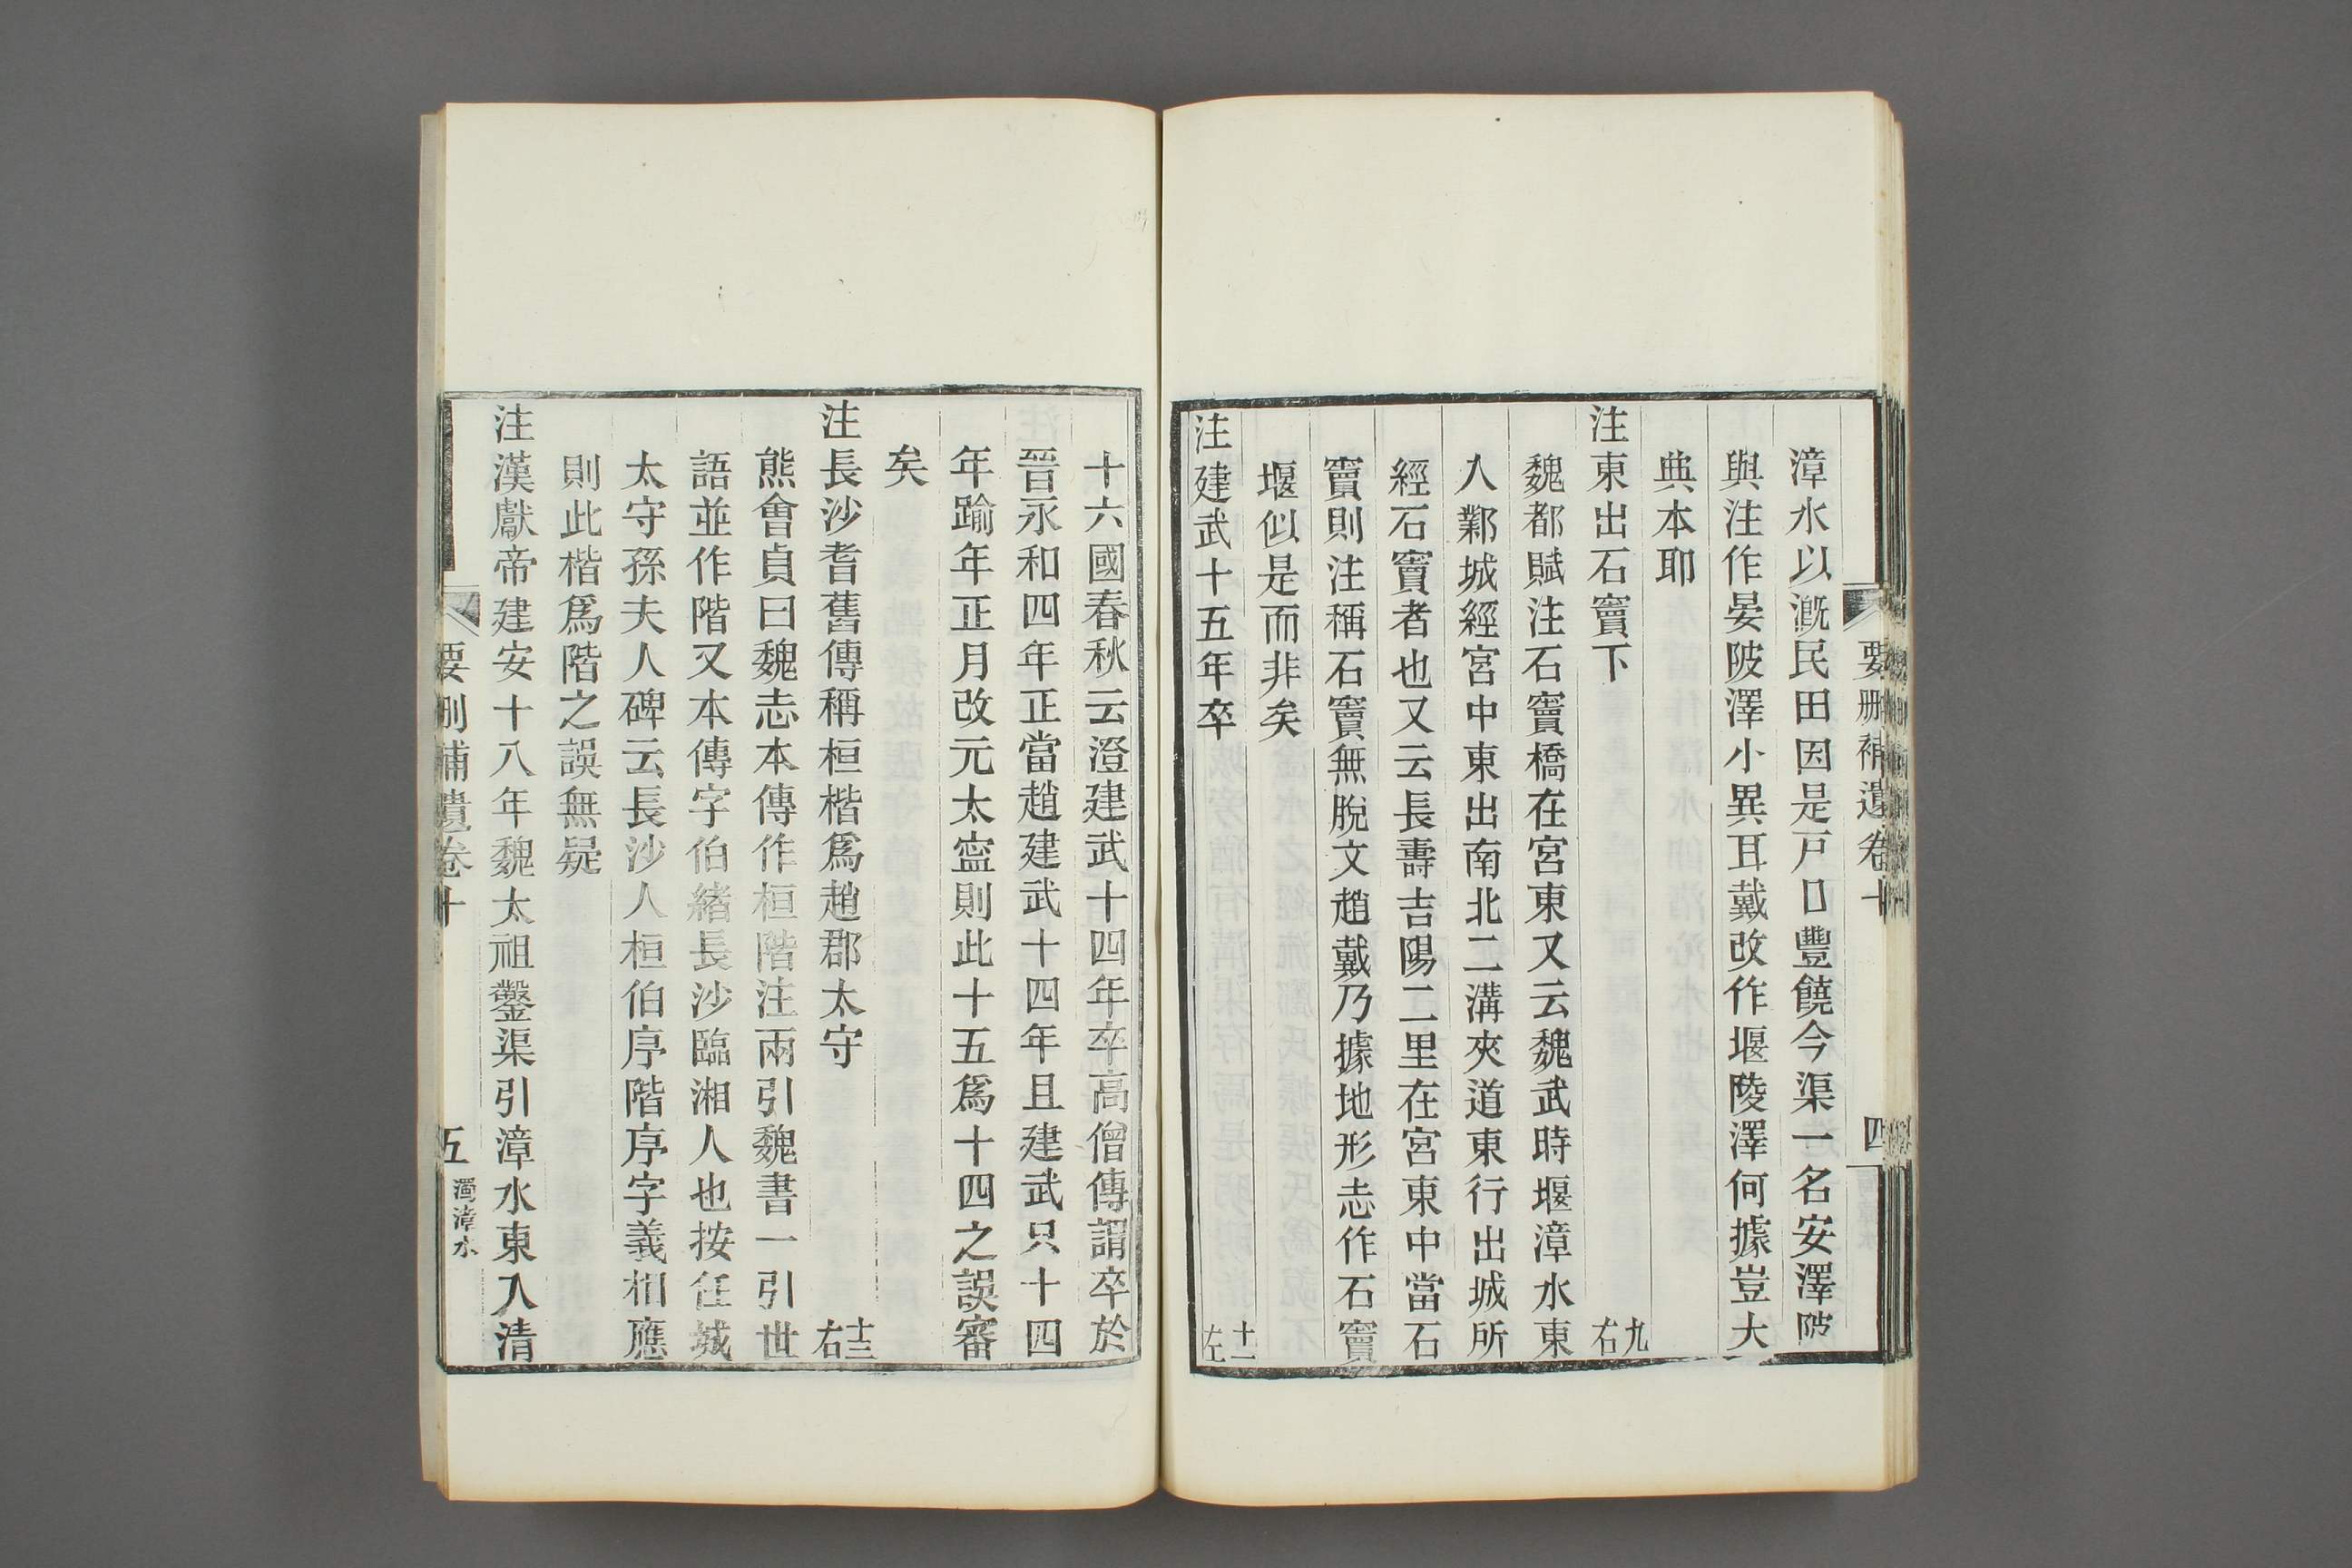 要刪補遺卷十
四
漳水以漑民田因是戸口豐饒今渠一名安澤陂
與注作晏陂澤小異耳戴改作堰陵澤何據豈大
典本耶
注東出石竇下
九右
魏都賦注石竇橋在宮東又云魏武時堰漳水東
入鄴城經宮中東出南北二溝夾道東行出城所
經石竇者也又云長壽吉陽二里在宮東中當石
竇則注稱石竇無脫文趙戴乃據地形志作石竇
堰似是而非矣
注建武十五年卒
十一左
十六國春秋云澄建武十四年卒高僧傳謂卒於
晉永和四年正當趙建武十四年且建武只十四
年踰年正月改元太寍則此十五爲十四之誤審
矣
注長沙耆舊傳稱桓楷爲趙郡太守
十三右
熊會貞曰魏志本傳作桓階注兩引魏書一引世
語並作階又本傳字伯緒長沙臨湘人也按任城
太守孫夫人碑云長沙人桓伯序階序字義相應
則此楷爲階之誤無疑
注漢獻帝建安十八年魏太祖鑿渠引漳水東入清
要刪補遺卷十
五
濁漳水